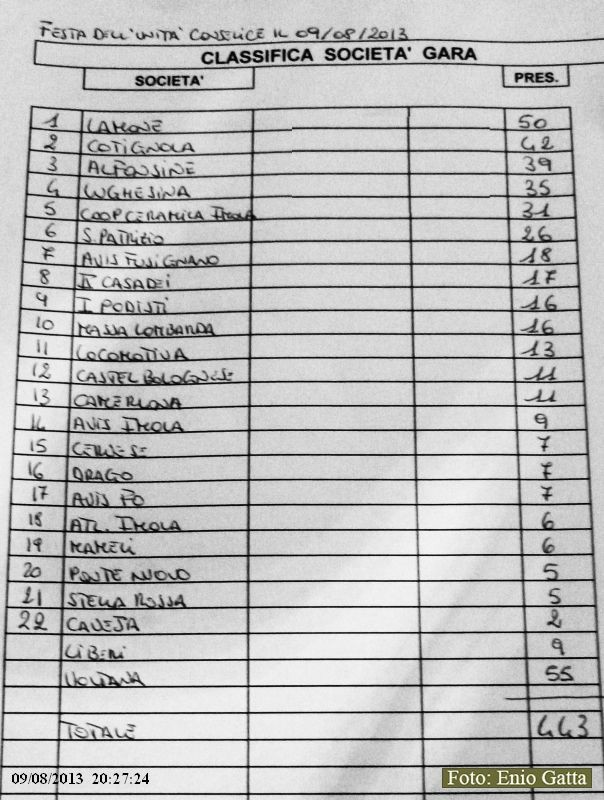 FESTA DELL'UNITA' CONSELICE IL 09/08/2013
CLASSIFICA SOCIETA' GARA
SOCIETA' PRES.
1 LAMONE 50
2 COTIGNOLA 42
3 ALFONSINE 39
4 LUGHESINA 35
5 COOP CERAMICA IMOLA 31
6 S. PATRIZIO 26
7 AVIS FUSIGNANO 18
8 IL CASADEI 17
9 I PODISTI 16
10 MASSA LOMBARDA 16
11 LOCOMOTIVA 13
12 CASTEL BOLOGNESE 11
13 CAMERLONA 11
14 AVIS IMOLA 9
15 CERVESE 7
16 DRAGO 7
17 AVIS FO 7
18 ATL. IMOLA 6
19 MAMELI 6
20 PONTE NUOVO 5
21 STELLA ROSSA 5
22 CAVEJA 2
LIBERI 9
VOLTANA 55
TOTALE 443
09/08/2013 20:27:24
Foto: Enio Gatta